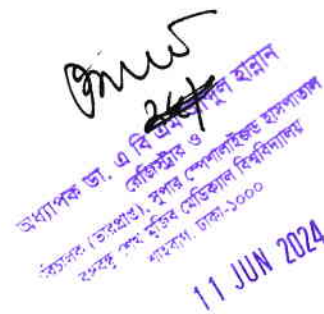 অধ্যাপক ডা. এ বি এম হান্নান
রেজিস্ট্রার ও
পরিচালক (ভারপ্রাপ্ত), সুপার স্পেশালাইজড হাসপাতাল
বঙ্গবন্ধু শেখ মুজিব মেডিক্যাল বিশ্ববিদ্যালয়
শাহবাগ, ঢাকা-১০০০
11 JUN 2024